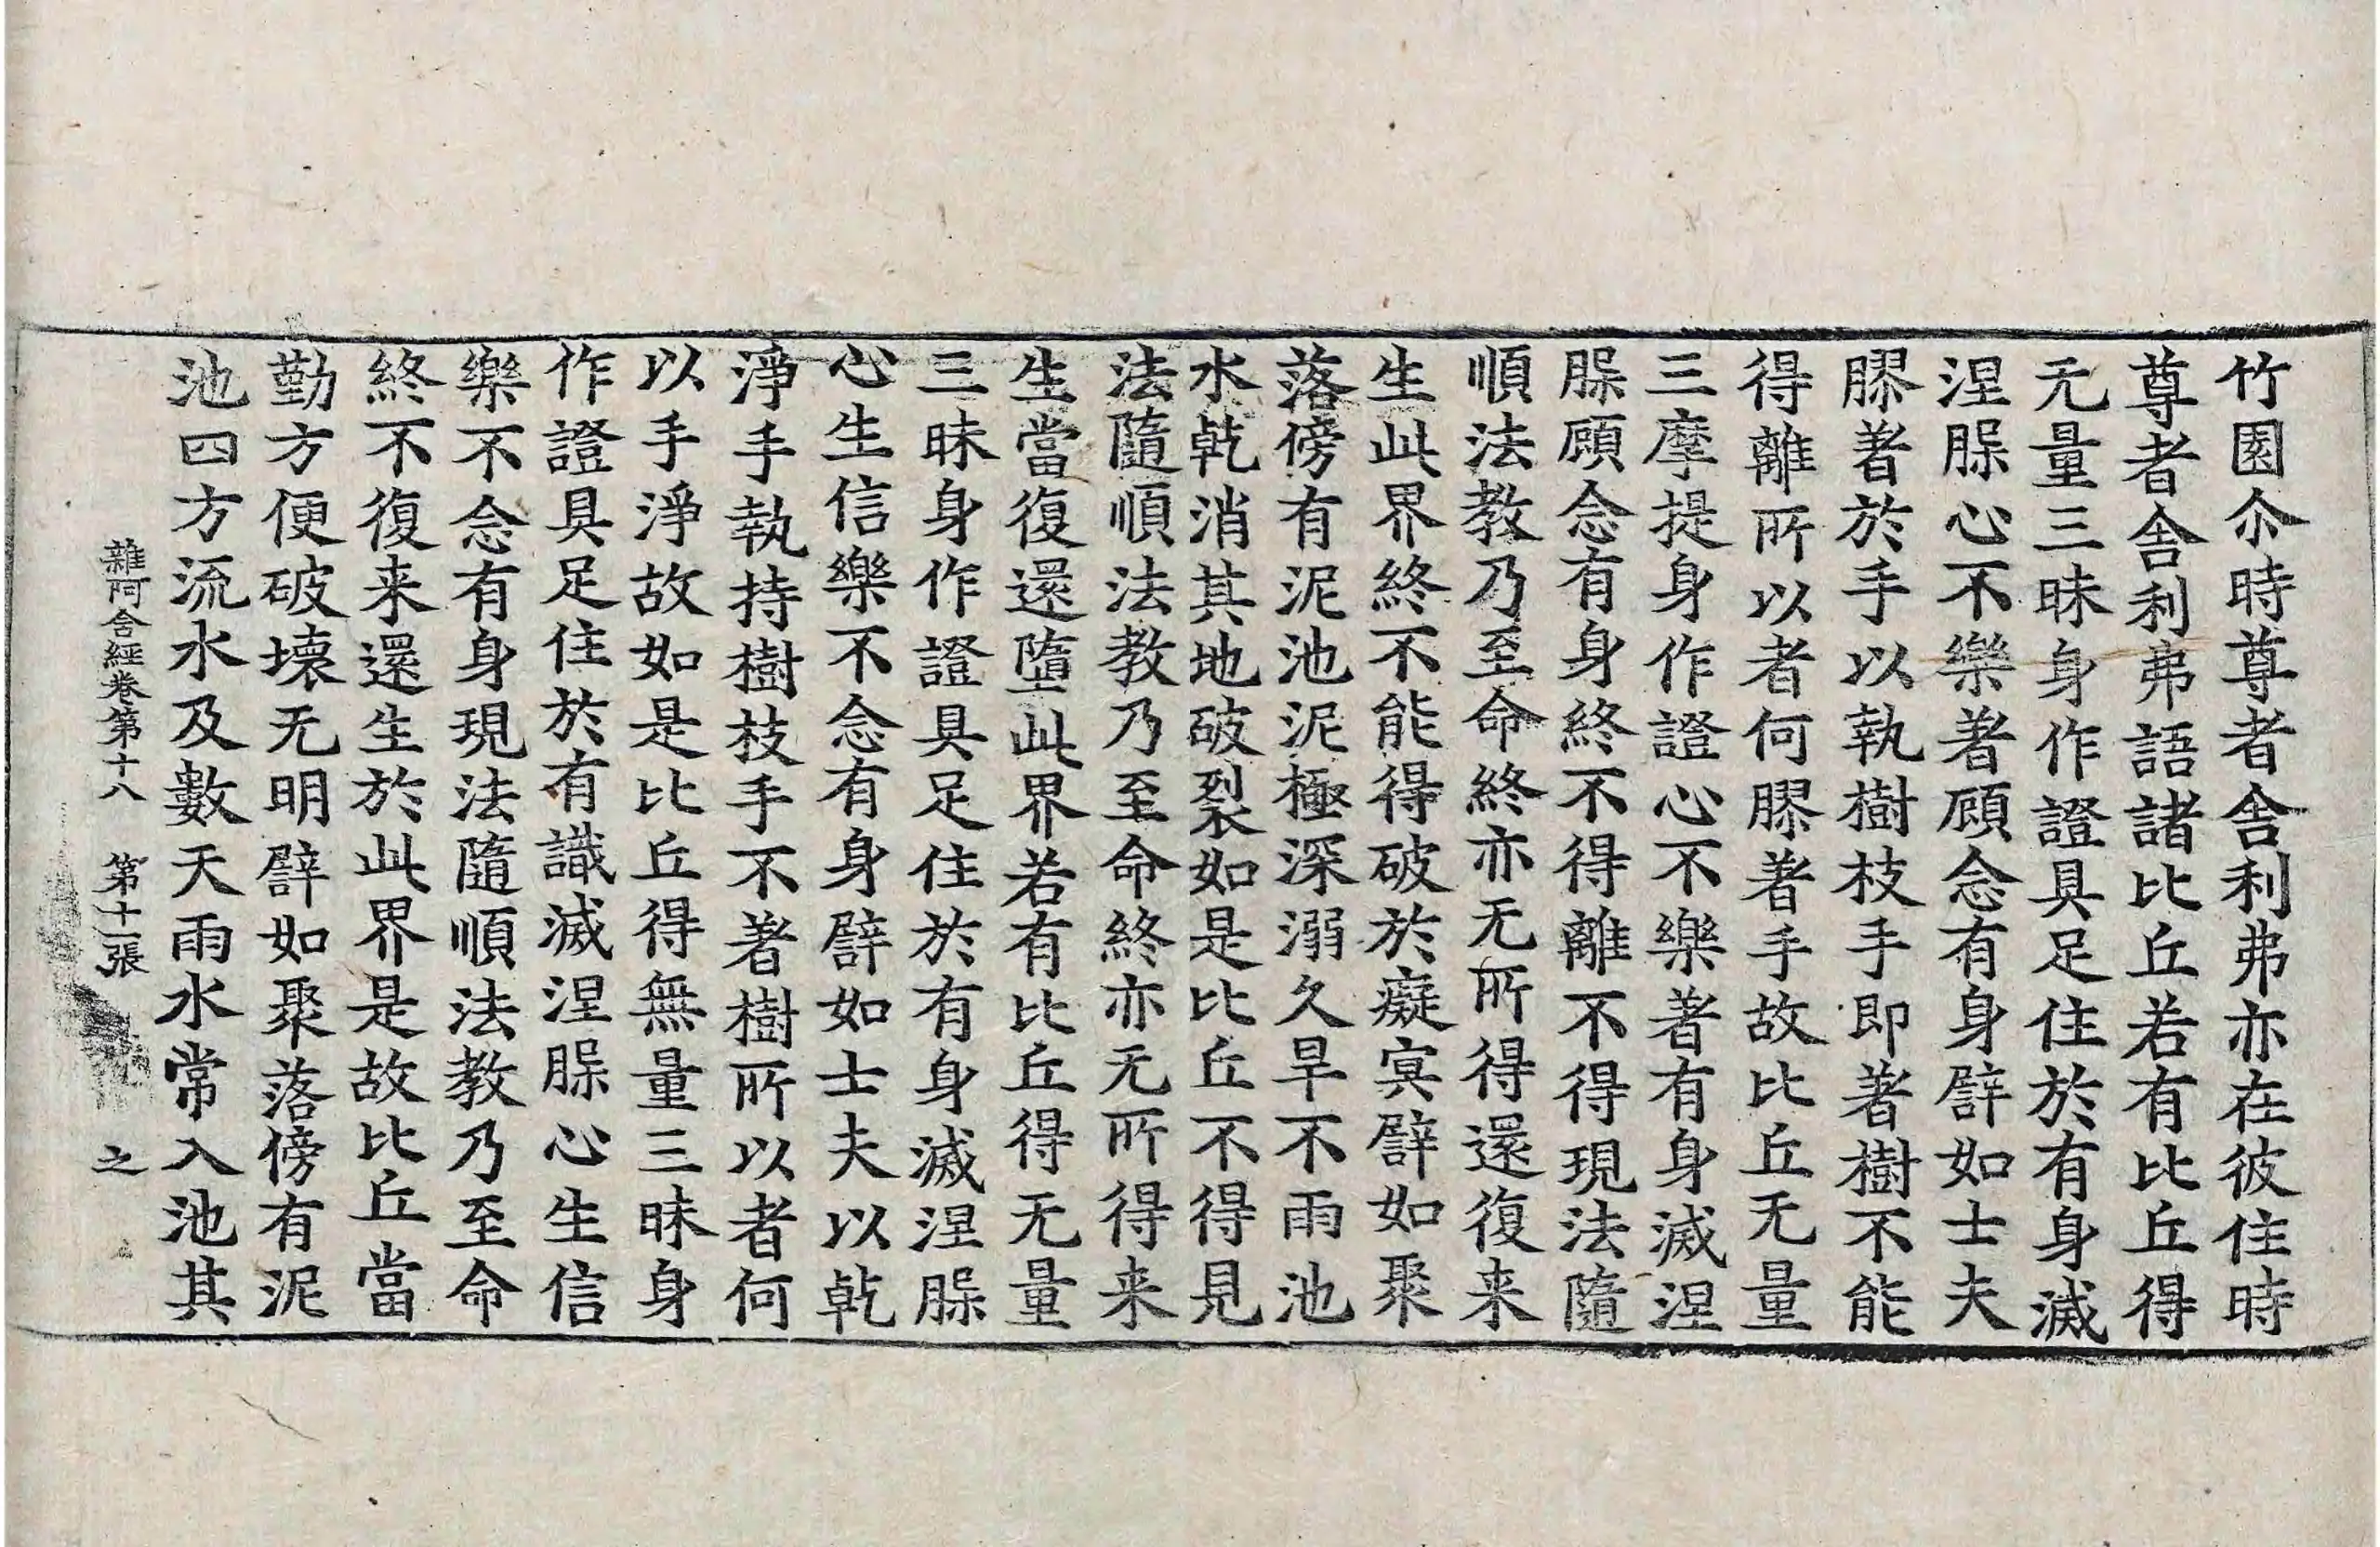 竹園尒時尊者舍利弗亦在彼住時
尊者舍利弗語諸比丘若有比丘得
无量三昧身作證具足住於有身滅
涅槃心不樂著顧念有身譬如士夫
膠著於手以執樹枝手即著樹不能
得離所以者何膠著手故比丘无量
三摩提身作證心不樂著有身滅涅
槃顧念有身終不得離不得現法隨
順法教乃至命終亦无所得還復来
生此界終不能得破於癡冥譬如聚
落傍有泥池泥極深溺久旱不雨池
水乾消其地破裂如是比丘不得見
法隨順法教乃至命終亦无所得来
生當復還墮此界若有比丘得无量
三昧身作證具足住於有身滅涅槃
心生信樂不念有身譬如士夫以乾
淨手執持樹枝手不著樹所以者何
以手淨故如是比丘得無量三昧身
作證具足住於有識滅涅槃心生信
樂不念有身現法隨順法教乃至命
終不復来還生於此界是故比丘當
勤方便破壞无明譬如聚落傍有泥
池四方流水及數天雨水常入池其
雜阿含經卷第十八 第十一張 之